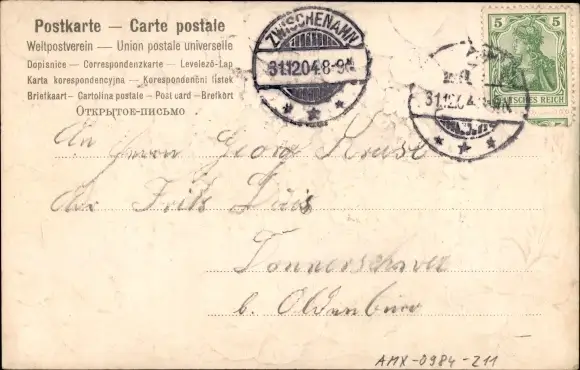 Postkarte — Carte postale
Weltpostverein — Union postale universelle
Dopisnice — Correspondenzkarte — Levelező-Lap
Karta korespondencyjna — Korespondenční lístek
Briefkaart — Cartolina postale — Post card — Brefkort
Открытое-письмо
ZWISCHENAHN
31.12.04.8-9N
31.12.04
5 5
DEUTSCHES REICH
An Herrn Georg Kruse
Fritz
Donnerschwee
b. Oldenburg
AMX-0984-Z11